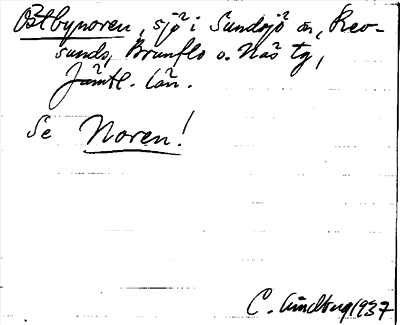 Östbynoren, sjö i Sundsjö sn, Rev-
sunds, Brunflo o. Näs tg,
Jämtl. län.
Se Noren!
C. Lindberg 1937